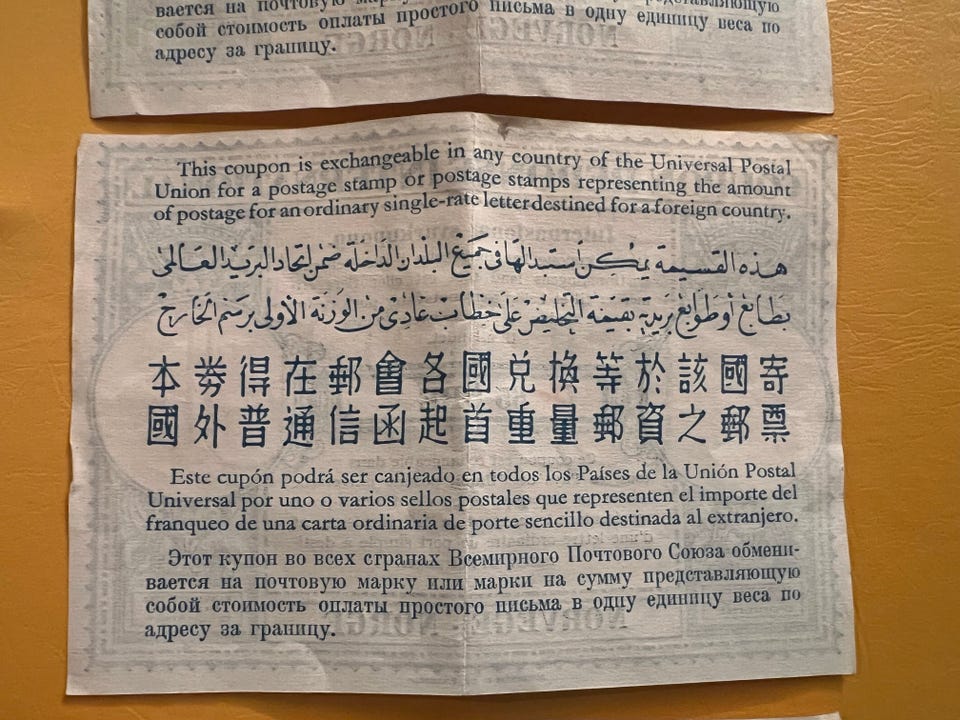 вается на почтовую марку представляющую
собой стоимость оплаты простого письма в одну единицу веса по
адресу за границу.
This coupon is exchangeable in any country of the Universal Postal
Union for a postage stamp or postage stamps representing the amount
of postage for an ordinary single-rate letter destined for a foreign country.
هذه القسيمة يمكن استبدالها فى جميع البلدان الداخلة ضمن اتحاد البريد العالمى
بطابع أو طوابع بريدية بقيمة التخليص على خطاب عادى من الوزنة الأولى برسم الخارج
本券得在郵會各國兌換等於該國寄
國外普通信函起首重量郵資之郵票
Este cupón podrá ser canjeado en todos los Países de la Unión Postal
Universal por uno o varios sellos postales que representen el importe del
franqueo de una carta ordinaria de porte sencillo destinada al extranjero.
Этот купон во всех странах Всемирного Почтового Союза обмени-
вается на почтовую марку или марки на сумму представляющую
собой стоимость оплаты простого письма в одну единицу веса по
адресу за границу.